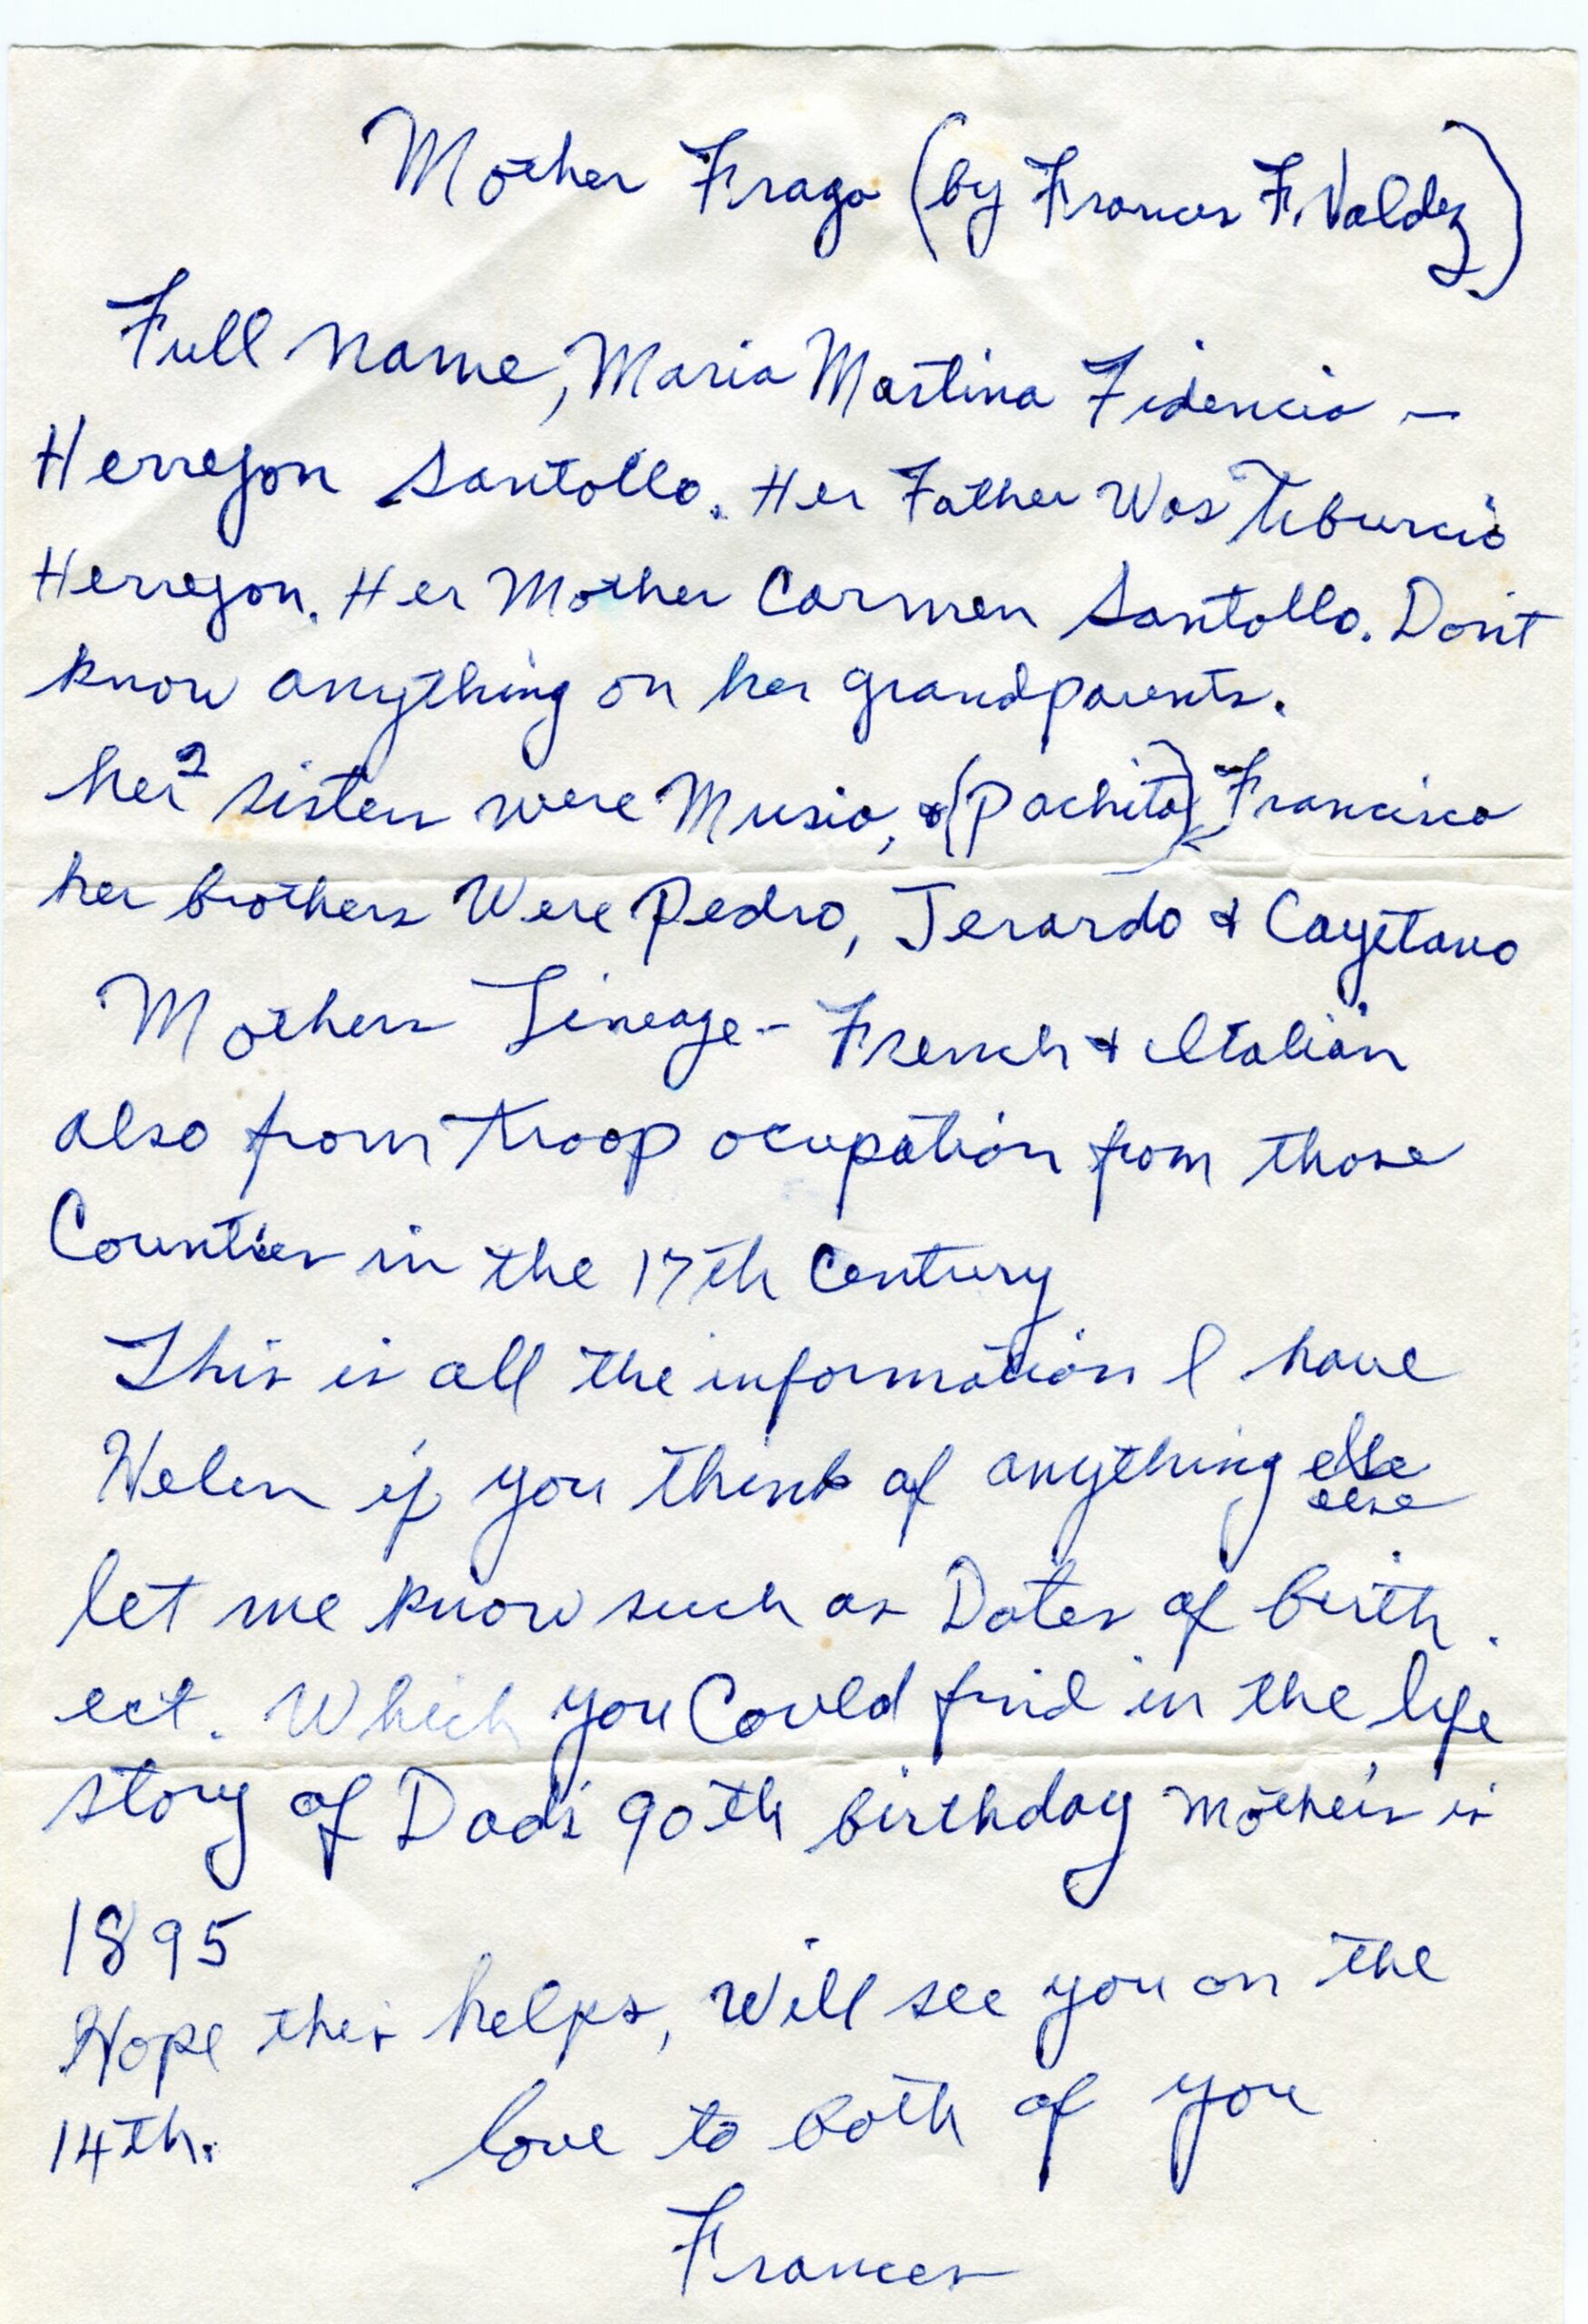 Mother Fraga (by Frances F. Valdez)
Full name, Maria Martina Fidencia -
Herrejon Santollo. Her Father Was Tiburcio
Herrejon. Her Mother Carmen Santollo. Don't
know anything on her grandparents.
her 2 sisters were Musia, & (Pachita) Francisca
her brothers Were Pedro, Jerardo & Cayetano
Mothers Lineage - French & Italian
also from troop ocupation from those
Countries in the 17th Century
This is all the information I have
Helen if you think of anything else
else
let me know such as Dates of birth.
ect. Which you Could find in the life
story of Dad's 90th birthday Mother's is
1895
Hope this helps, Will see you on the
14th. love to both of you
Frances